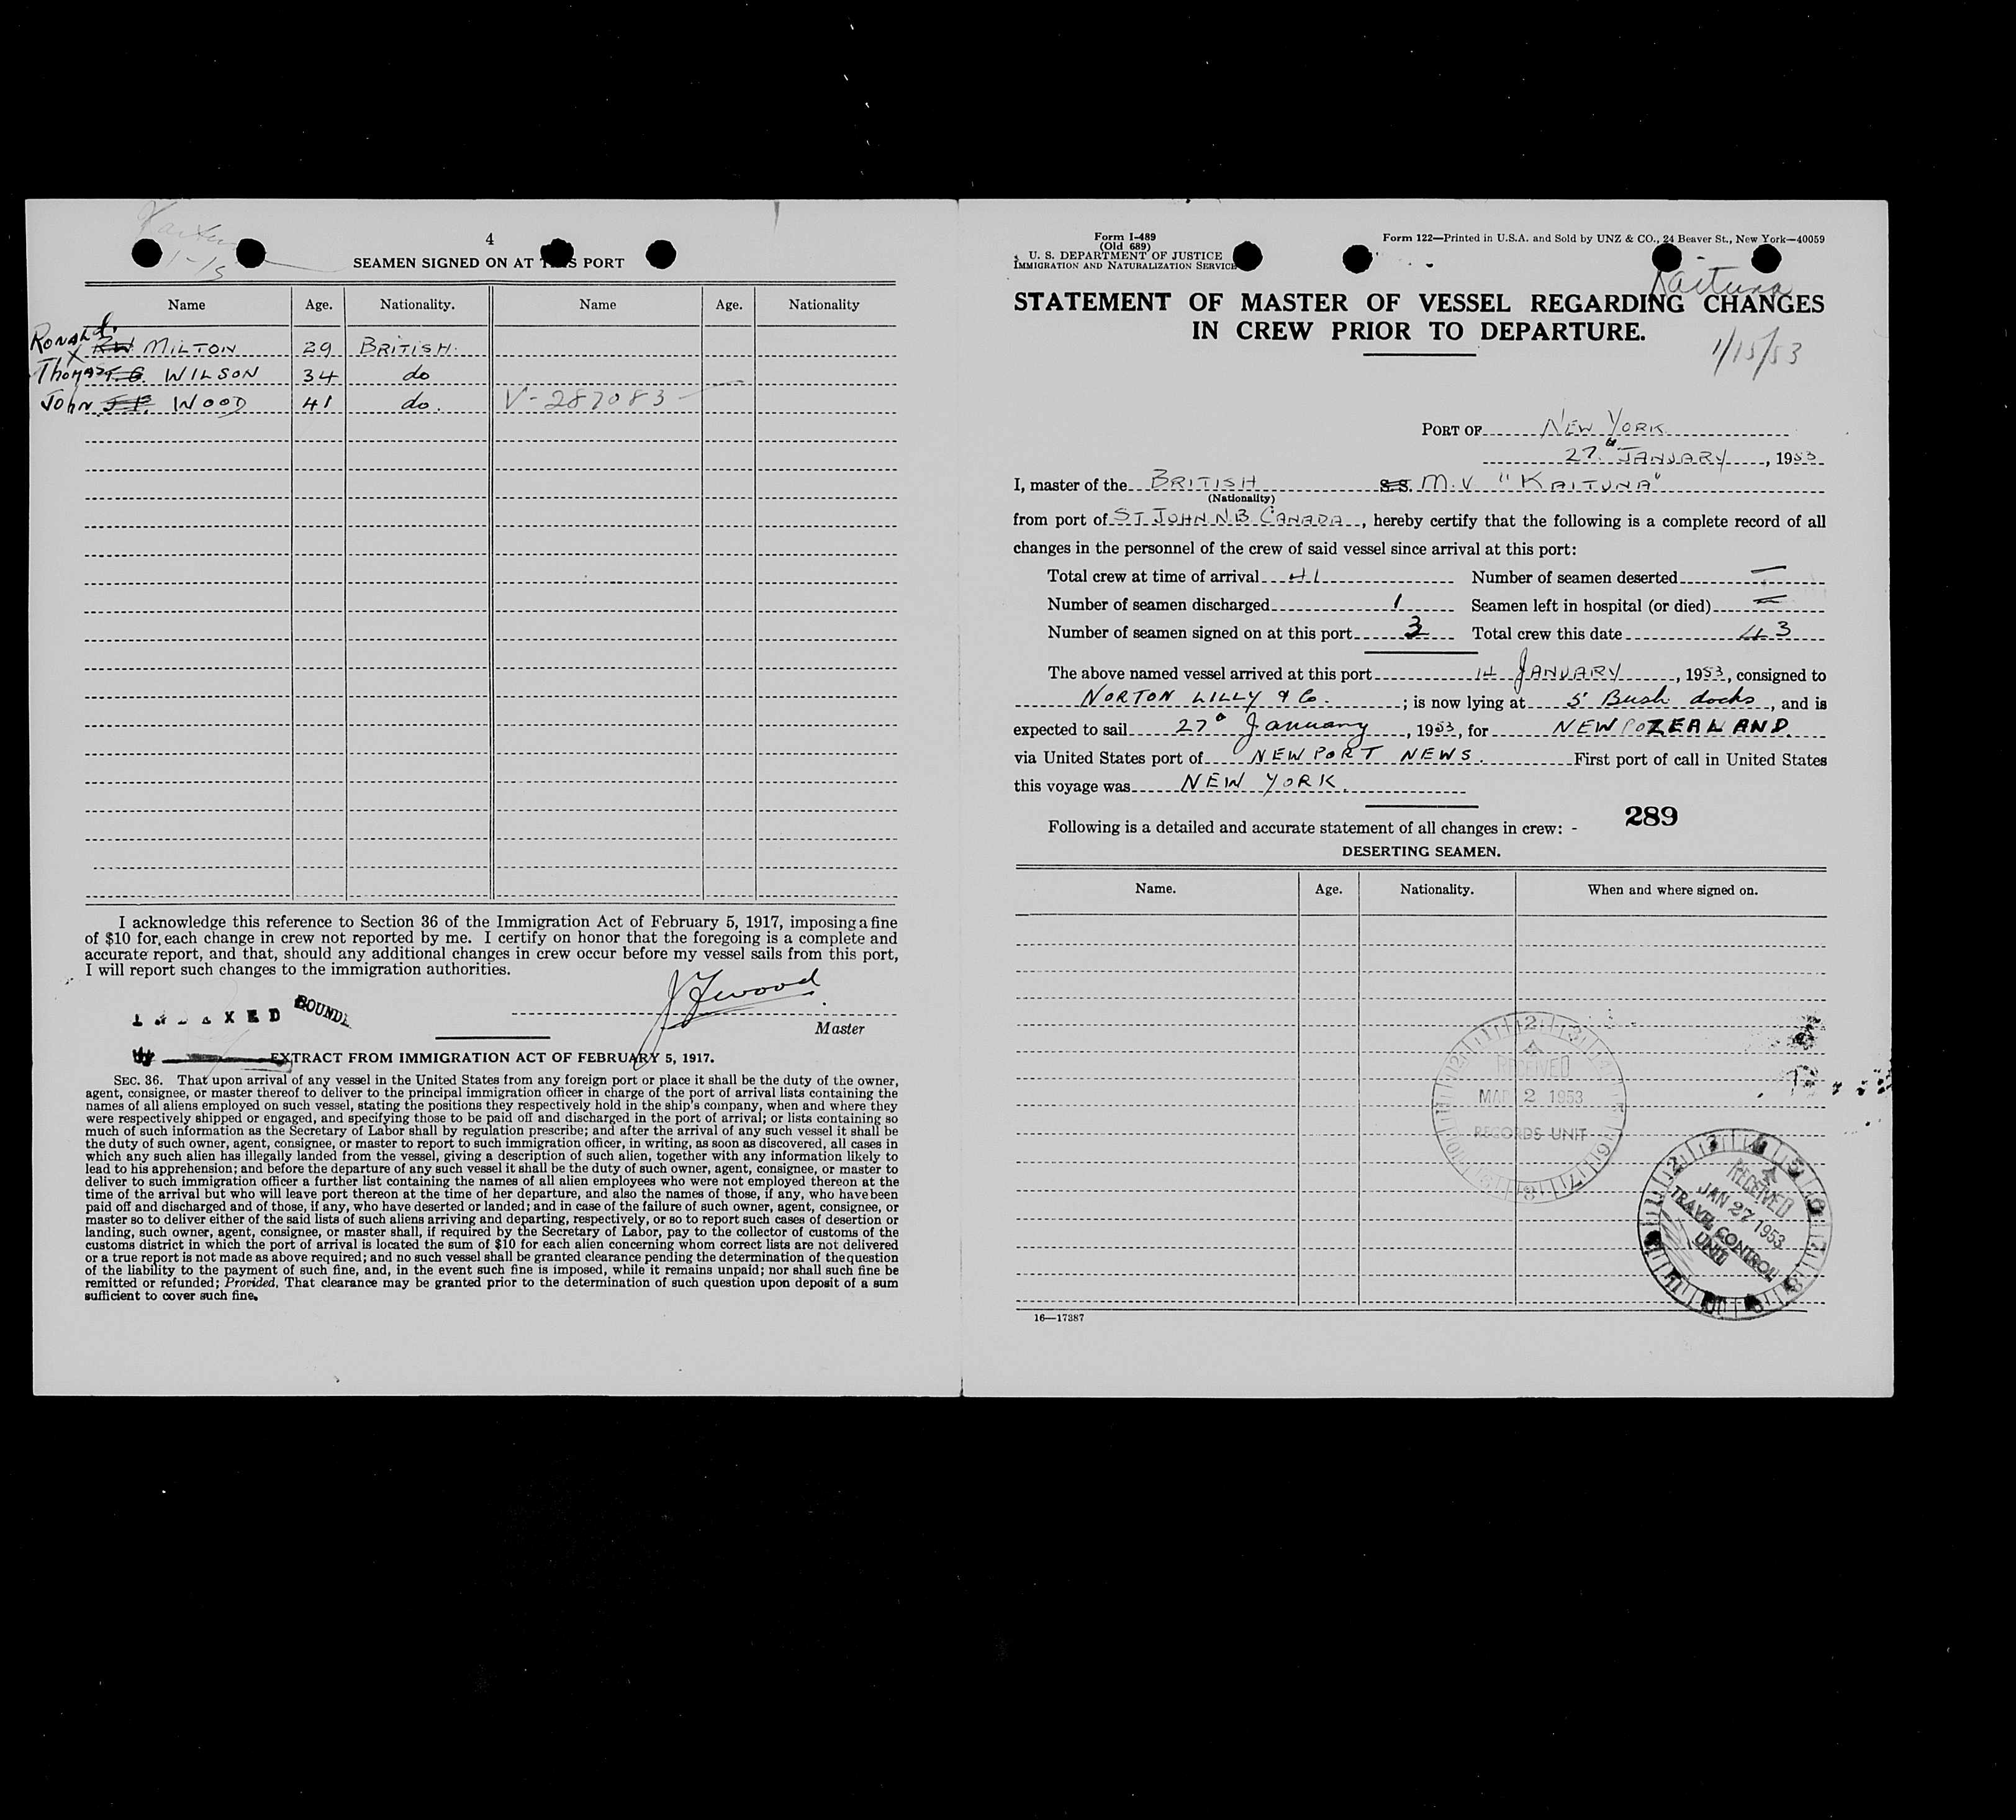 Kaituna
1-15
4
SEAMEN SIGNED ON AT PORT
Name Age. Nationality. Name Age. Nationality
RONALD RW MILTON 29 BRITISH.
X
Thomas T.G. WILSON 34 do
John J F. WOOD 41 do. V-287083
I acknowledge this reference to Section 36 of the Immigration Act of February 5, 1917, imposing a fine
of $10 for each change in crew not reported by me. I certify on honor that the foregoing is a complete and
accurate report, and that, should any additional changes in crew occur before my vessel sails from this port,
I will report such changes to the immigration authorities.
JFWood
Master
EXTRACT FROM IMMIGRATION ACT OF FEBRUARY 5, 1917.
SEC. 36. That upon arrival of any vessel in the United States from any foreign port or place it shall be the duty of the owner,
agent, consignee, or master thereof to deliver to the principal immigration officer in charge of the port of arrival lists containing the
names of all aliens employed on such vessel, stating the positions they respectively hold in the ship's company, when and where they
were respectively shipped or engaged, and specifying those to be paid off and discharged in the port of arrival; or lists containing so
much of such information as the Secretary of Labor shall by regulation prescribe; and after the arrival of any such vessel it shall be
the duty of such owner, agent, consignee, or master to report to such immigration officer, in writing, as soon as discovered, all cases in
which any such alien has illegally landed from the vessel, giving a description of such alien, together with any information likely to
lead to his apprehension; and before the departure of any such vessel it shall be the duty of such owner, agent, consignee, or master to
deliver to such immigration officer a further list containing the names of all alien employees who were not employed thereon at the
time of the arrival but who will leave port thereon at the time of her departure, and also the names of those, if any, who have been
paid off and discharged and of those, if any, who have deserted or landed; and in case of the failure of such owner, agent, consignee, or
master so to deliver either of the said lists of such aliens arriving and departing, respectively, or so to report such cases of desertion or
landing, such owner, agent, consignee, or master shall, if required by the Secretary of Labor, pay to the collector of customs of the
customs district in which the port of arrival is located the sum of $10 for each alien concerning whom correct lists are not delivered
or a true report is not made as above required; and no such vessel shall be granted clearance pending the determination of the question
of the liability to the payment of such fine, and, in the event such fine is imposed, while it remains unpaid; nor shall such fine be
remitted or refunded; Provided, That clearance may be granted prior to the determination of such question upon deposit of a sum
sufficient to cover such fine.
Form I-489
(Old 689)
U. S. DEPARTMENT OF JUSTICE
IMMIGRATION AND NATURALIZATION SERVICE
Form 122—Printed in U.S.A. and Sold by UNZ & CO., 24 Beaver St., New York—40059
Kaituna
STATEMENT OF MASTER OF VESSEL REGARDING CHANGES
IN CREW PRIOR TO DEPARTURE.
1/15/53
PORT OF NEW YORK
27. JANUARY, 1953
I, master of the BRITISH S.S. M.V "KAITUNA"
(Nationality)
from port of ST JOHN N.B CANADA, hereby certify that the following is a complete record of all
changes in the personnel of the crew of said vessel since arrival at this port:
Total crew at time of arrival 41 Number of seamen deserted —
Number of seamen discharged 1 Seamen left in hospital (or died) —
Number of seamen signed on at this port 3 Total crew this date 43
The above named vessel arrived at this port 14 JANUARY, 1953, consigned to
NORTON LILLY & Co.; is now lying at 5 Bush docks, and is
expected to sail 27 January, 1953, for NEW ZEALAND.
via United States port of NEWPORT NEWS. First port of call in United States
this voyage was NEW YORK.
289
Following is a detailed and accurate statement of all changes in crew: -
DESERTING SEAMEN.
Name. Age. Nationality. When and where signed on.
RECEIVED
MAR 2 1953
RECORDS UNIT
RECEIVED
JAN 27 1953
TRAVEL CONTROL
UNIT
16—17387